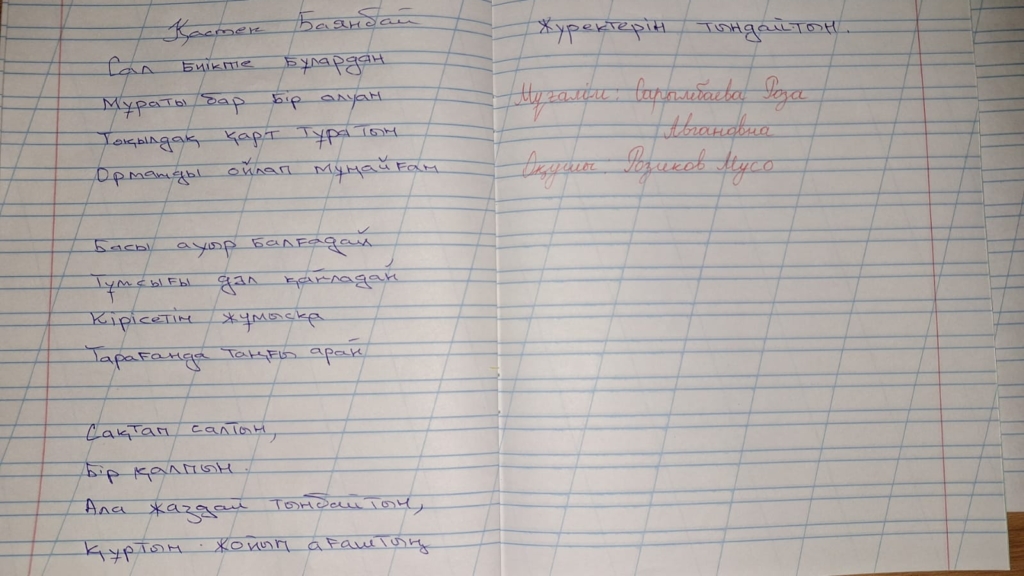 Қастек Баянбай
Сал биікте бұлардан
Мұраты бар бір алуан
Тоқылдақ қарт тұратын
Орманды ойлап мұңайған
Басы ауыр балғадай
Тұмсығы дәл қайладай
Кірісетін жұмысқа
Тарағанда таңғы арай
Сақтап салтын,
Бір қалпын.
Ала жаздай тынбайтын,
Құртын жойып ағаштың
Жүректерін тыңдайтын.
Мұғалім: Сарымбаева Роза
Авгановна
Оқушы: Розиков Мусо